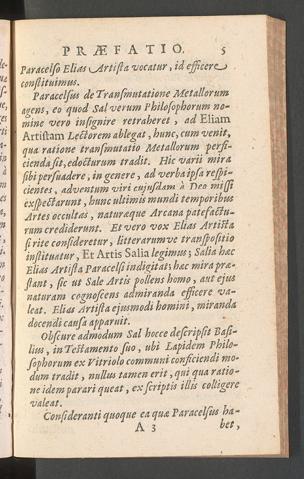 PRÆFATIO. 5
Paracelso Elias Artista vocatur, id efficere
constituimus.
Paracelsus de Transmutatione Metallorum
agens, eo quod Sal verum Philosophorum no-
mine vero insignire retraheret, ad Eliam
Artistam Lectorem ablegat, hunc, cum venit,
qua ratione transmutatio Metallorum perfi-
cienda sit, edocturum tradit. Hic varii mira
sibi persuadere, in genere, ad verba ipsa respi-
cientes, adventum viri cujusdam à Deo missi
expectarunt, hunc ultimis mundi temporibus
Artes occultas, naturæque Arcana patefactu-
rum crediderunt. Et vero vox Elias Artista
si rite consideretur, litterarumve transpositio
instituatur, Et Artis Salia legimus; Salia hac
Elias Artista Paracelsi indigitat; hac mira præ-
stant, sic ut Sale Artis pollens homo, aut ejus
naturam cognoscens admiranda efficere va-
leat. Elias Artista ejusmodi homini, miranda
docendi causa apparuit.
Obscure admodum Sal hocce descripsit Basi-
lius, in Testamento suo, ubi Lapidem Philo-
sophorum ex Vitriolo communi conficiendi mo-
dum tradit, nullus tamen erit, qui qua ratio-
ne idem parari queat, ex scriptis illis colligere
valeat.
Consideranti quoque ea quæ Paracelsus ha-
A 3 bet,